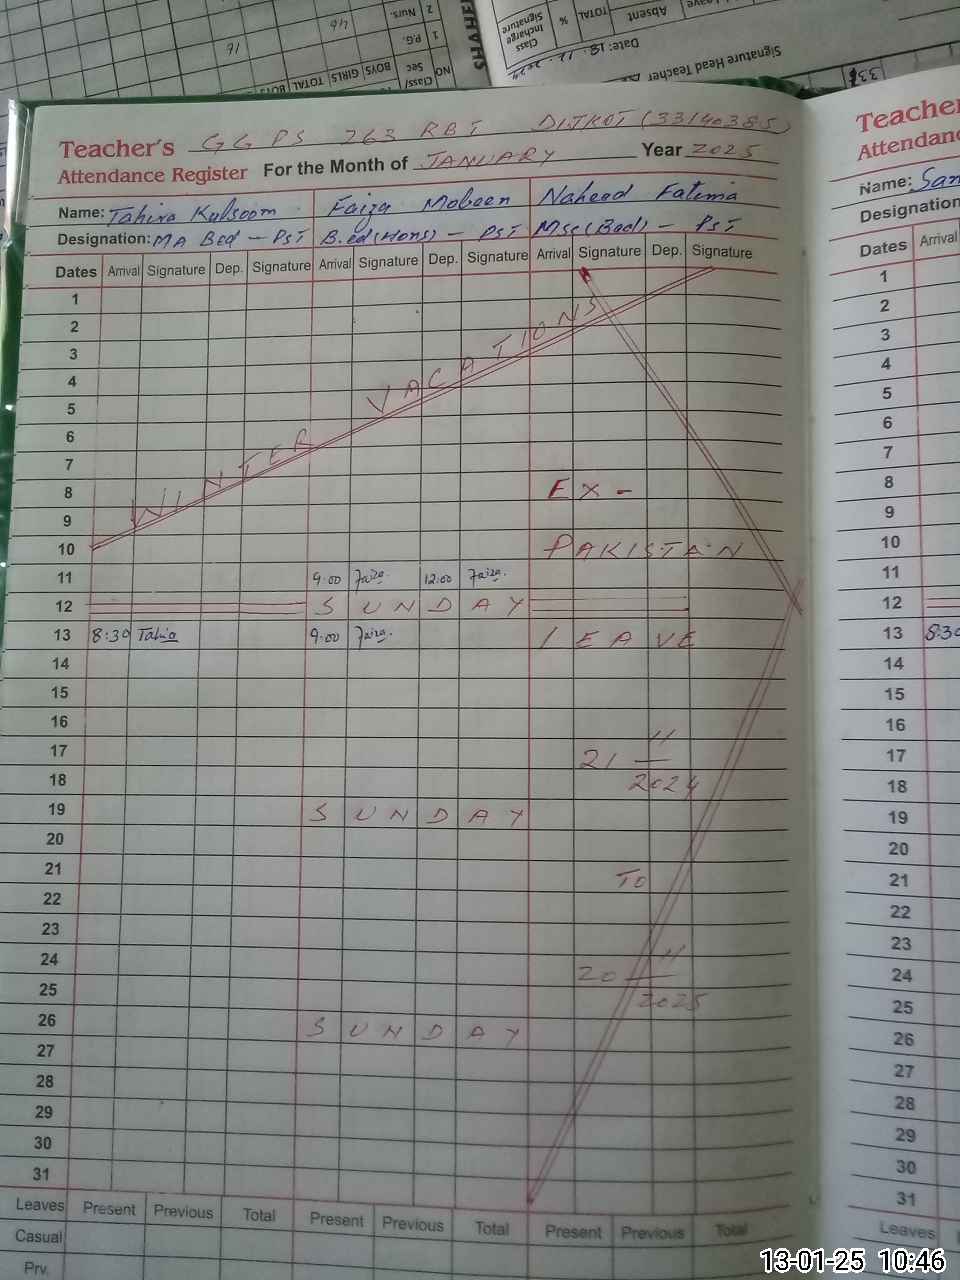 SHAHEEN
NO Class/ Sec BOYS GIRLS TOTAL BOYS
1 P.G.
2 Nurs.
16
46
Class Incharge Signature % TOTAL Absent Leave
Date: 18.12.2024
Signature Head Teacher
33
Teacher's GGPS 263 RBI DIJKOT (33140385)
Attendance Register For the Month of JANUARY Year 2025
Name: Tahira Kulsoom Faiza Mobeen Naheed Fatima
Designation: MA Bed - PST B.ed(Hons) - PST MSc(Bed) - PST
Dates Arrival Signature Dep. Signature Arrival Signature Dep. Signature Arrival Signature Dep. Signature
1
2
3
4
5
6
7
8 EX -
9
10 PAKISTAN
WINTER VACATIONS
11 9:00 Faiza. 12:00 Faiza.
12 SUNDAY
13 8:30 Tahira 9:00 Faiza. LEAVE
14
15
16
17 21 11
18 2024
19 SUNDAY
20
21 TO
22
23
24 20 11
25 2025
26 SUNDAY
27
28
29
30
31
Leaves Present Previous Total Present Previous Total Present Previous Total
Casual
Prv.
Teacher
Attendance
Name: San
Designation
Dates Arrival
1
2
3
4
5
6
7
8
9
10
11
12
13 8:30
14
15
16
17
18
19
20
21
22
23
24
25
26
27
28
29
30
31
Leaves
13-01-25 10:46